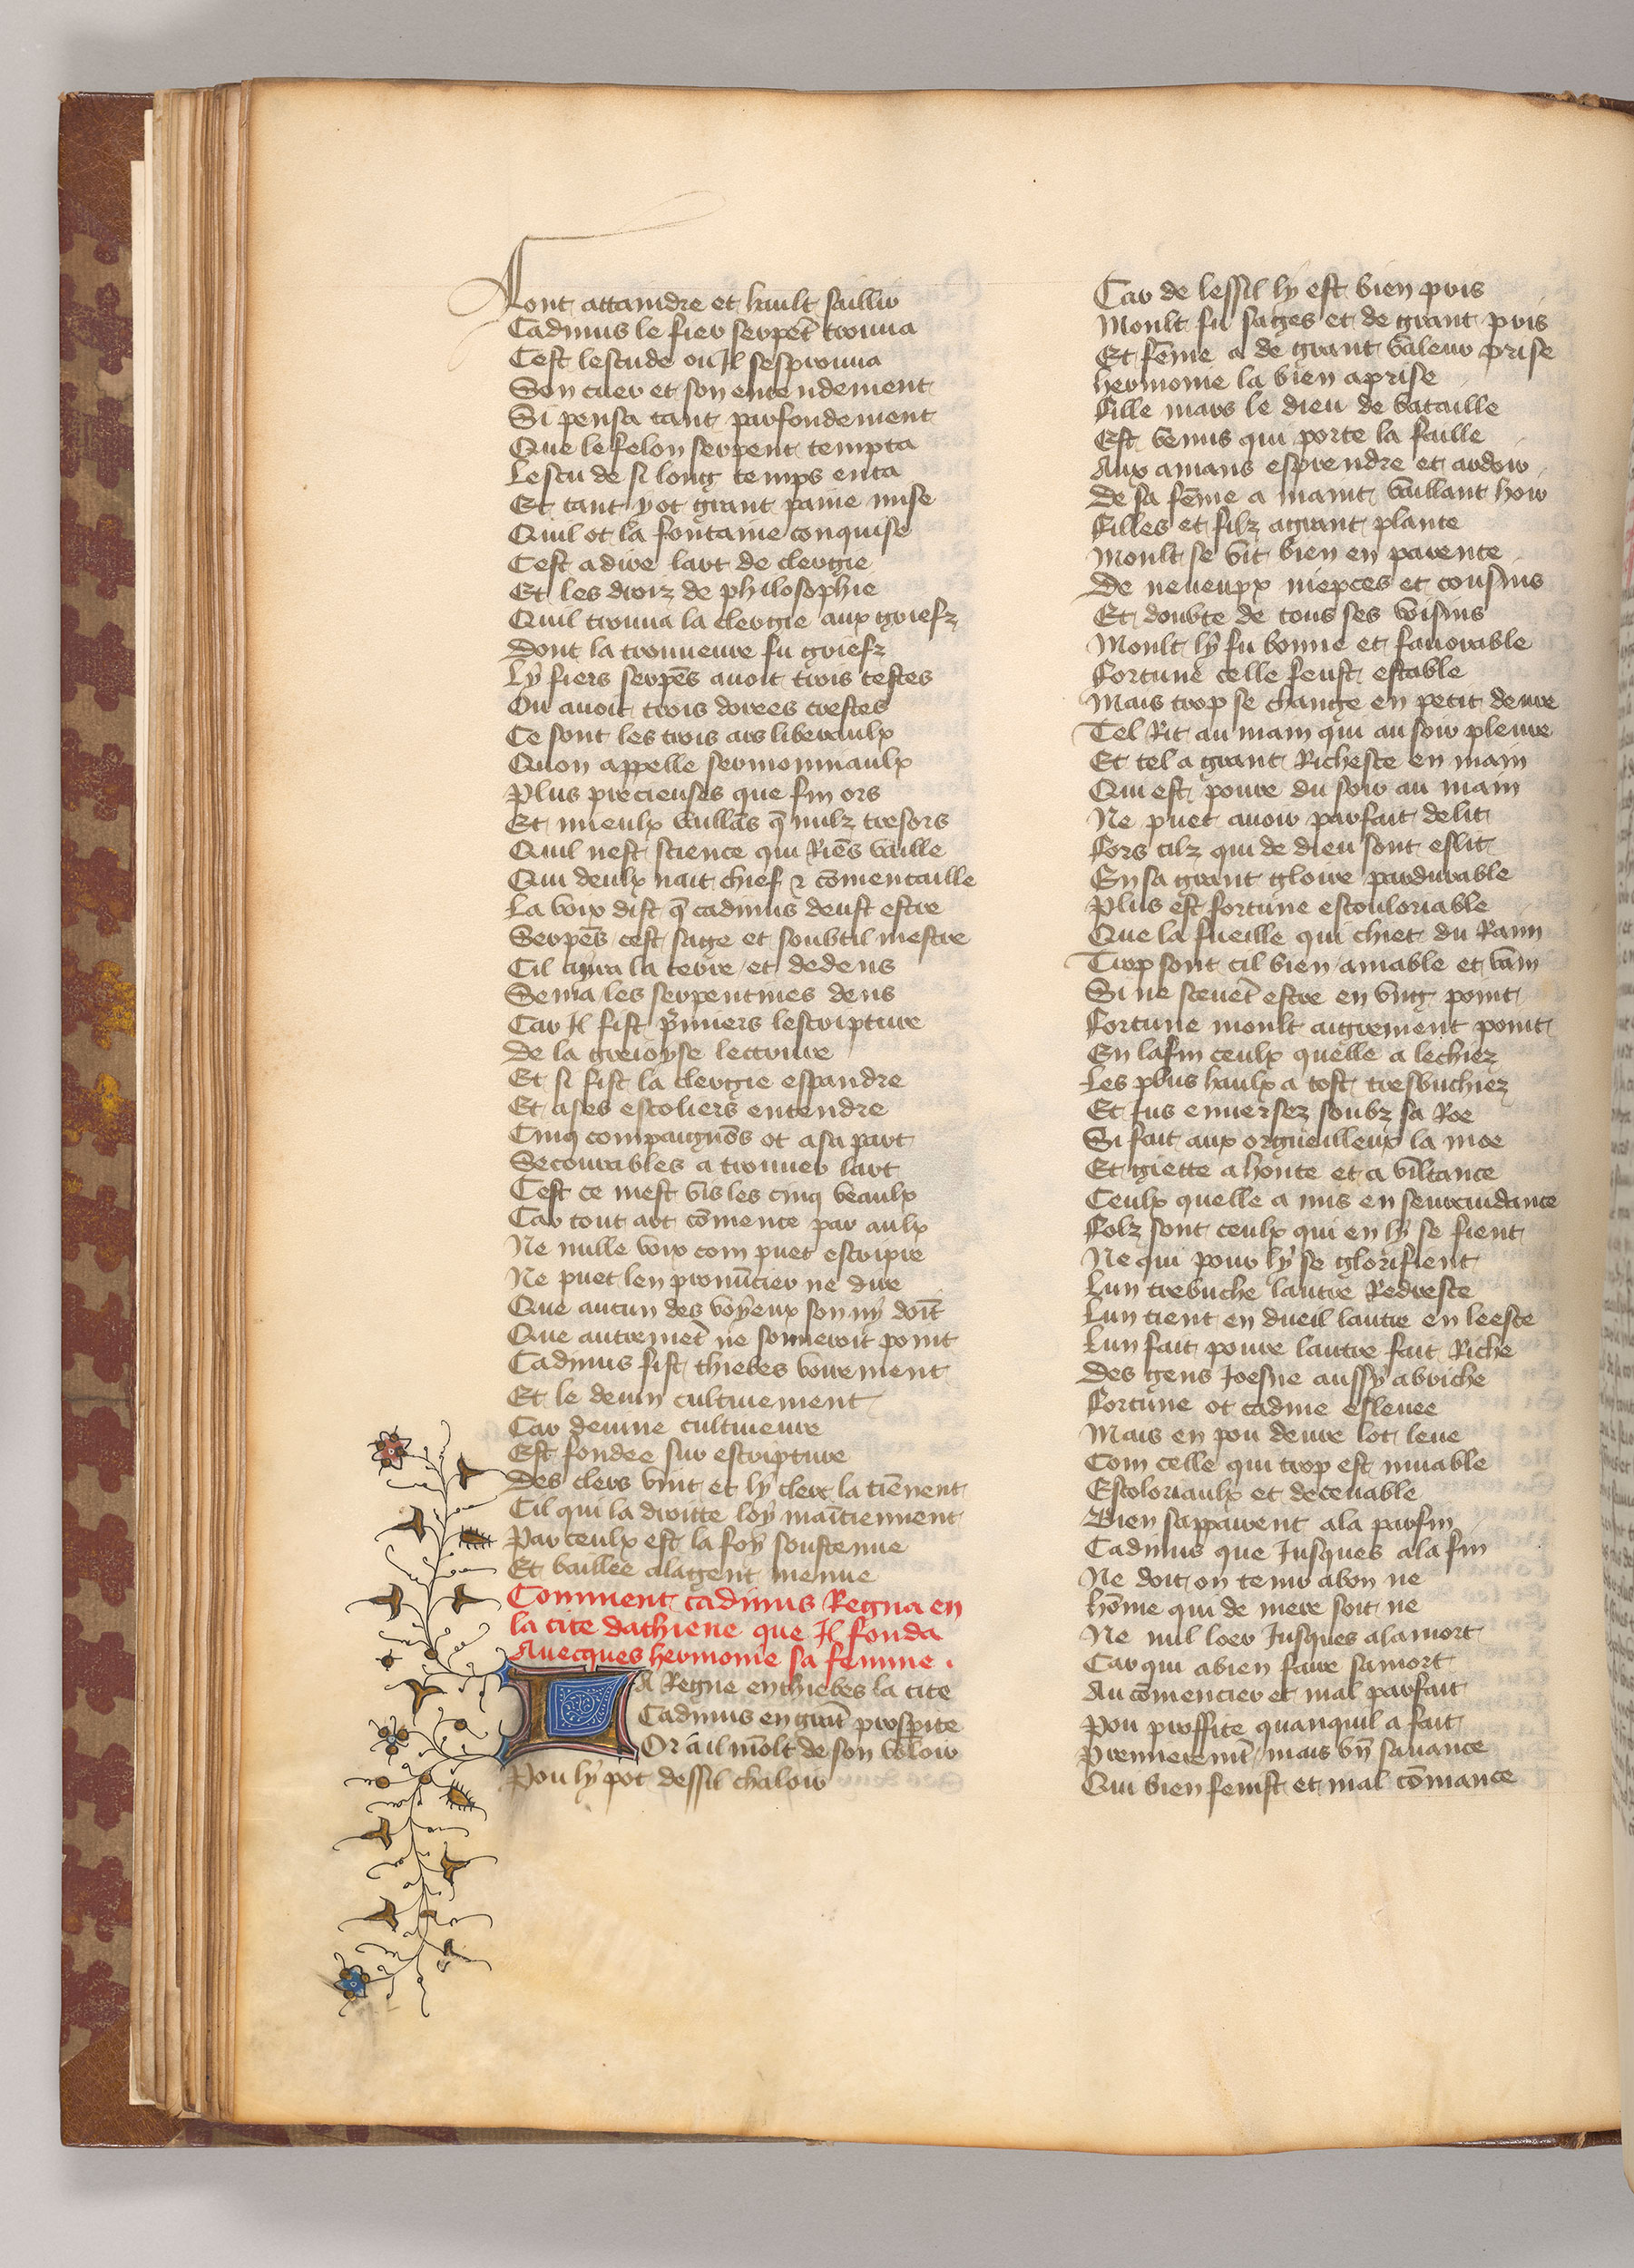 Lont attaindre et hault saillir
Cadmus le fier serpēt trouua
Cest lescude ou Il sesprouua
Son cuer et son entendement
Si pensa tant parfondement
Que le felon serpent tempta
Lescu de si long temps enta
Et tant y ot grant paine mise
Quil ot la fontaine conquise
Cest adire lart de clergie
Et les droiz de philosophie
Quil trouua la clergie aux griefz
Dont la trouueure fu griefz
Ly fiers serpēs auoit trois testes
Ou auoit trois dorees crestes
Ce sont les trois ars liberaulx
Quon appelle sermonnaulx
Plus precieuses que fin ors
Et mieulx vaillās q̄ nulz tresors
Quil nest science qui Riēs vaille
Qui deulx nait chief ⁊ cōmencaille
La voix dist q̄ cadmus deust estre
Serpēs cest sage et soubtil mestre
Cil ayra la terre et dedens
Sema les serpentines dens
Car Il fist p̄miers lescripture
De la greioyse lectture
Et si fist la clergie espandre
Et ases escoliers entendre
Cinq compaignōs ot asa part
Secourables a trouuer lart
Cest ce mest vis les cinq veaulx
Car tout art cōmence par aulx
Ne nulle voix com puet escripre
Ne puet len pronūcier ne dire
Que aucun des voyeux son ny doīt
Que autremēt ne sonneroit point
Cadmus fist thiebes voirement
Et le deuin cultiuement
Car deuine cultiueure
Est fondee sur escripture
Des clers vint et ly clerc la tiēnent
Cil qui la droitte loy maītiennent
Par ceulx est la foy soustenue
Et baillee alagent menue
Comment cadmus Regna en
la cite dathiene que Il fonda
Auecques hermonie sa femme .
LA Regne enthiebes la cite
Cadmus en grāt prosp̄ite
Or a il mōlt de son voloir
Pou ly pot dessil chaloir
Car de lessil ly est bien pris
Moult fu sages et de grant pris
Et fēme a de grant valeur prise
hermonie la bien aprise
Fille mars le dieu de bataille
Est venus qui porte la faille
Aux amans esprendre et ardoir
De sa fēme a maint vaillant hoir
Filles et filz agrant plante
Moult se vit bien en parente
De neueupx niepces et cousins
Et doubte de tous ses voisins
Moult ly fu bonne et fauorable
Fortune celle feust estable
Mais trop se change en petit deure
Tel Rit au main qui au soir pleure
Et tel a grant Richesce en main
Qui est poure du soir au main
Ne puet auoir parfait delit
Fors cilz qui de dieu sont eslit
En sa grant gloire pardurable
Plus est fortune escouloriable
Que la fueille qui chiet du Raim
Trop sont cil bien amable et vain
Si ne sceuēt estre en vng point
Fortune moult aigrement point
En lafin ceulx quelle a lechiez
Les plus haulx a tost tresbuchiez
Et Jus enuersez soubz sa Roe
Si fait aux orgueilleux la moe
Et giette a honte et a viltance
Ceulx quelle a mis en seurcuidance
Folz sont ceulx qui en ly se fient
Ne qui pour ly se glorifient
Lun trebuche lautre Redresce
Lun tient en dueil lautre en leesce
Lun fait poure lautre fait Riche
Des gens Joesne aussy abriche
Fortune ot cadme esleuee
Mais en pou deure lot leue
Com celle qui trop est muable
Escoloriaulx et deceuable
Bien sapparent ala parfin
Cadmus que Jusques ala fin
Ne doit on tenir abon ne
hōme qui de mere soit ne
Ne nul loer Jusques alamort
Car qui abien faire samort
Au cōmencier et mal parfait
Pou proffite quanquil a fait
Premieremēt mais vn̄ sauance
Qui bien fenist et mal cōmance